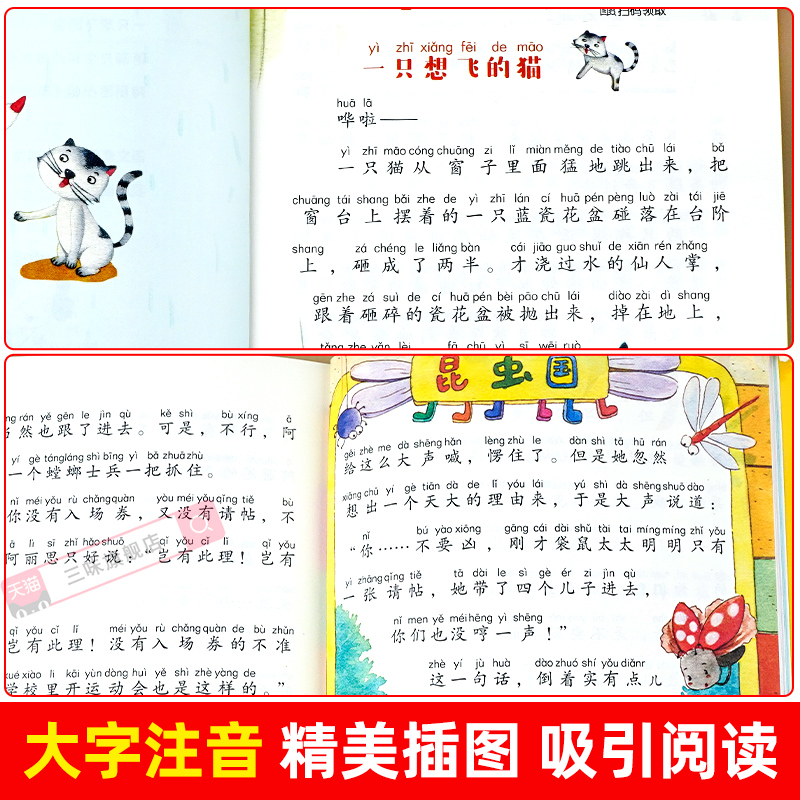 图扫码领取
yì zhī xiǎng fēi de māo
一只想飞的猫
huā lā
哗啦——
yì zhī māo cóng chuāng zi lǐ miàn měng de tiào chū lái bǎ
一只猫从窗子里面猛地跳出来，把
chuāng tái shang bǎi zhe de yì zhī lán cí huā pén pèng luò zài tái jiē
窗台上摆着的一只蓝瓷花盆碰落在台阶
shang zá chéng le liǎng bàn cái jiāo guo shuǐ de xiān rén zhǎng
上，砸成了两半。才浇过水的仙人掌，
gēn zhe zá suì de cí huā pén bèi pāo chū lái diào zài dì shang
跟着砸碎的瓷花盆被抛出来，掉在地上，
昆虫国
ng rán yě gēn le jìn qù kě shì bù xíng ā
当然也跟了进去。可是，不行，阿
yí gè táng láng shì bīng yì bǎ zhuā zhù
一个螳螂士兵一把抓住。
nǐ méi yǒu rù chǎng quàn yòu méi yǒu qǐng tiě bù
你没有入场券，又没有请帖，不
ā lì sī zhǐ hǎo shuō qǐ yǒu cǐ lǐ qǐ yǒu
阿丽思只好说：“岂有此理！岂有
qǐ yǒu cǐ lǐ méi yǒu rù chǎng quàn de bù zhǔn
岂有此理！没有入场券的不准
xué xiào lǐ kāi yùn dòng huì yě shì zhè yàng de
学校里开运动会也是这样的。”
gěi zhè me dà shēng hǎn lèng zhù le dàn shì tā hū rán
给这么大声喊，愣住了。但是她忽然
xiǎng chū yí gè tiān dà de lǐ yóu lái yú shì dà shēng shuō dào
想出一个天大的理由来，于是大声说道：
nǐ bú yào xiōng gāng cái dài shǔ tài tai míng míng zhǐ yǒu
“你……不要凶，刚才袋鼠太太明明只有
yì zhāng qǐng tiě tā dài le sì gè ér zi jìn qù
一张请帖，她带了四个儿子进去，
nǐ men yě méi hēng yì shēng
你们也没哼一声！”
zhè yí jù huà dào zhuó shí yǒu diǎnr
这一句话，倒着实有点儿
天猫
三味旗舰店
大字注音 精美插图 吸引阅读